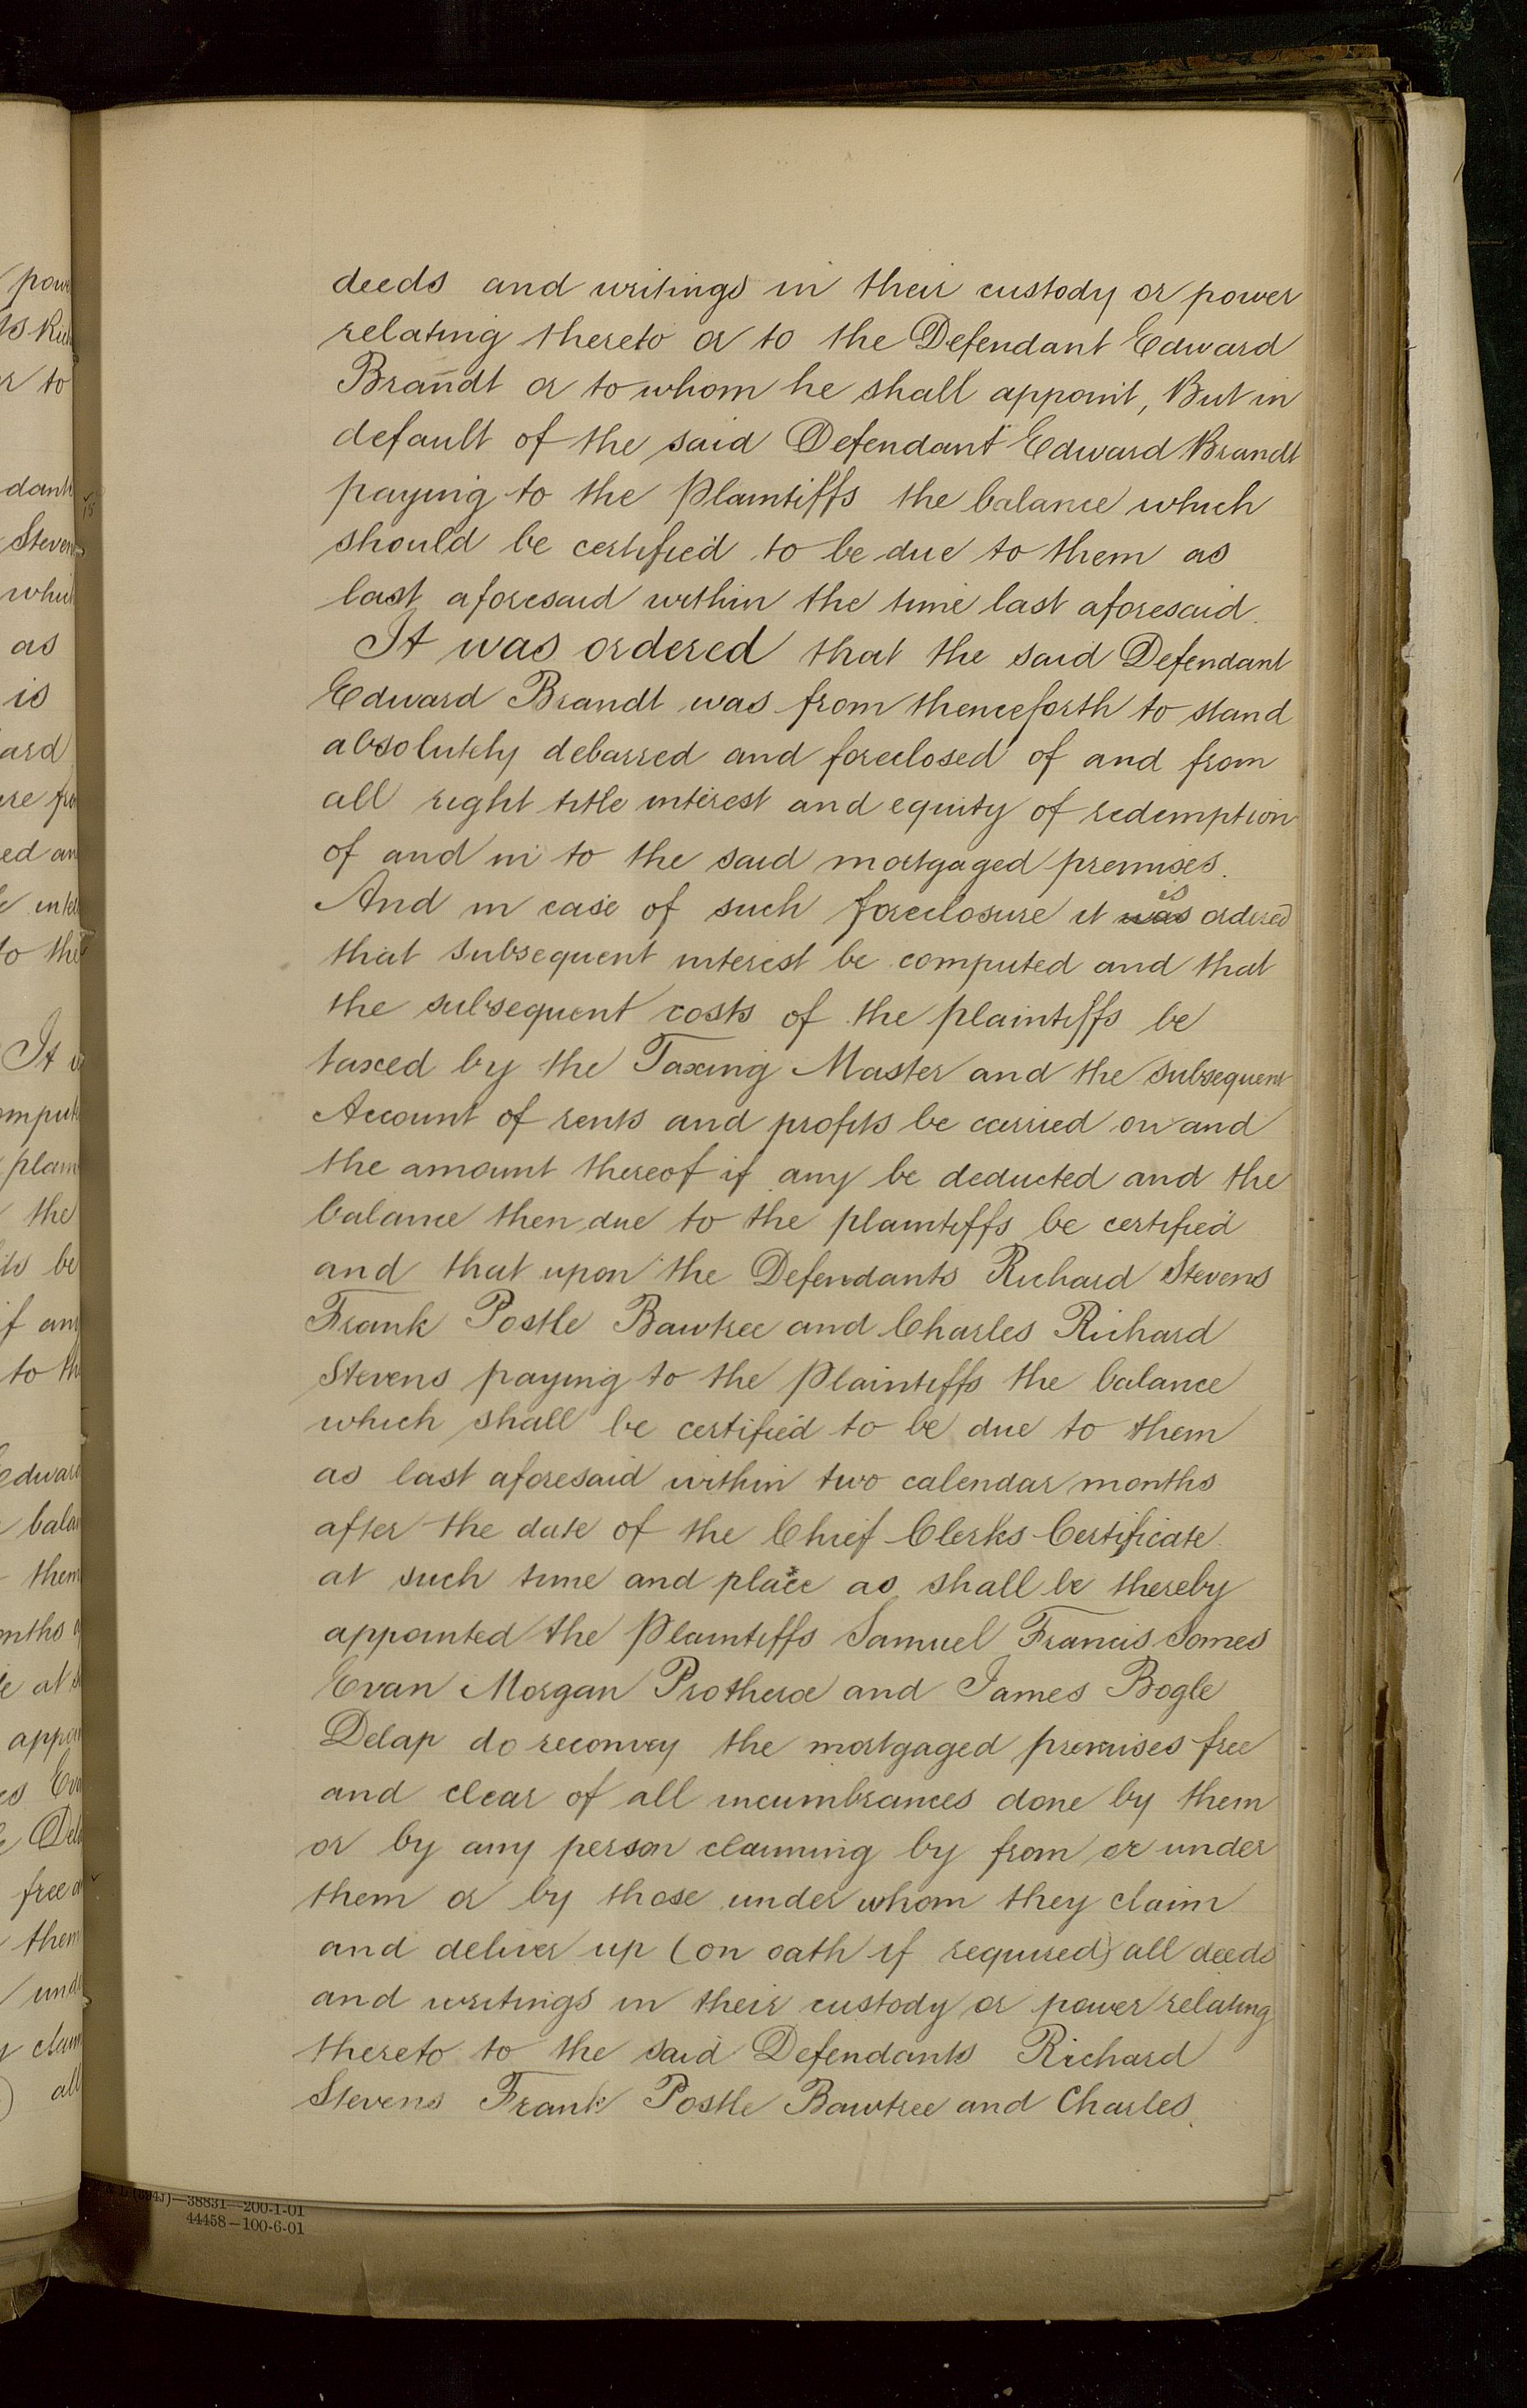 deeds and writings in their custody or power
relating thereto or to the Defendant Edward
Brandt or to whom he shall appoint, But in
default of the said Defendant Edward Brandt
paying to the Plaintiffs the balance which
should be certified to be due to them as
last aforesaid within the time last aforesaid.
It was ordered that the said Defendant
Edward Brandt was from thenceforth to stand
absolutely debarred and foreclosed of and from
all right title interest and equity of redemption
of and in to the said mortgaged premises.
And in case of such foreclosure it was is ordered
that subsequent interest be computed and that
the subsequent costs of the plaintiffs be
taxed by the Taxing Master and the subsequent
Account of rents and profits be carried on and
the amount thereof if any be deducted and the
balance then due to the plaintiffs be certified
and that upon the Defendants Richard Stevens
Frank Postle Bawtree and Charles Richard
Stevens paying to the Plaintiffs the balance
which shall be certified to be due to them
as last aforesaid within two calendar months
after the date of the Chief Clerks Certificate
at such time and place as shall be thereby
appointed the Plaintiffs Samuel Francis Somes
Evan Morgan Protheroe and James Bogle
Delap do reconvey the mortgaged premises free
and clear of all incumbrances done by them
or by any person claiming by from or under
them or by those under whom they claim
and deliver up (on oath if required) all deeds
and writings in their custody or power relating
thereto to the said Defendants Richard
Stevens Frank Postle Bawtree and Charles
38831—200-1-01
44458—100-6-01